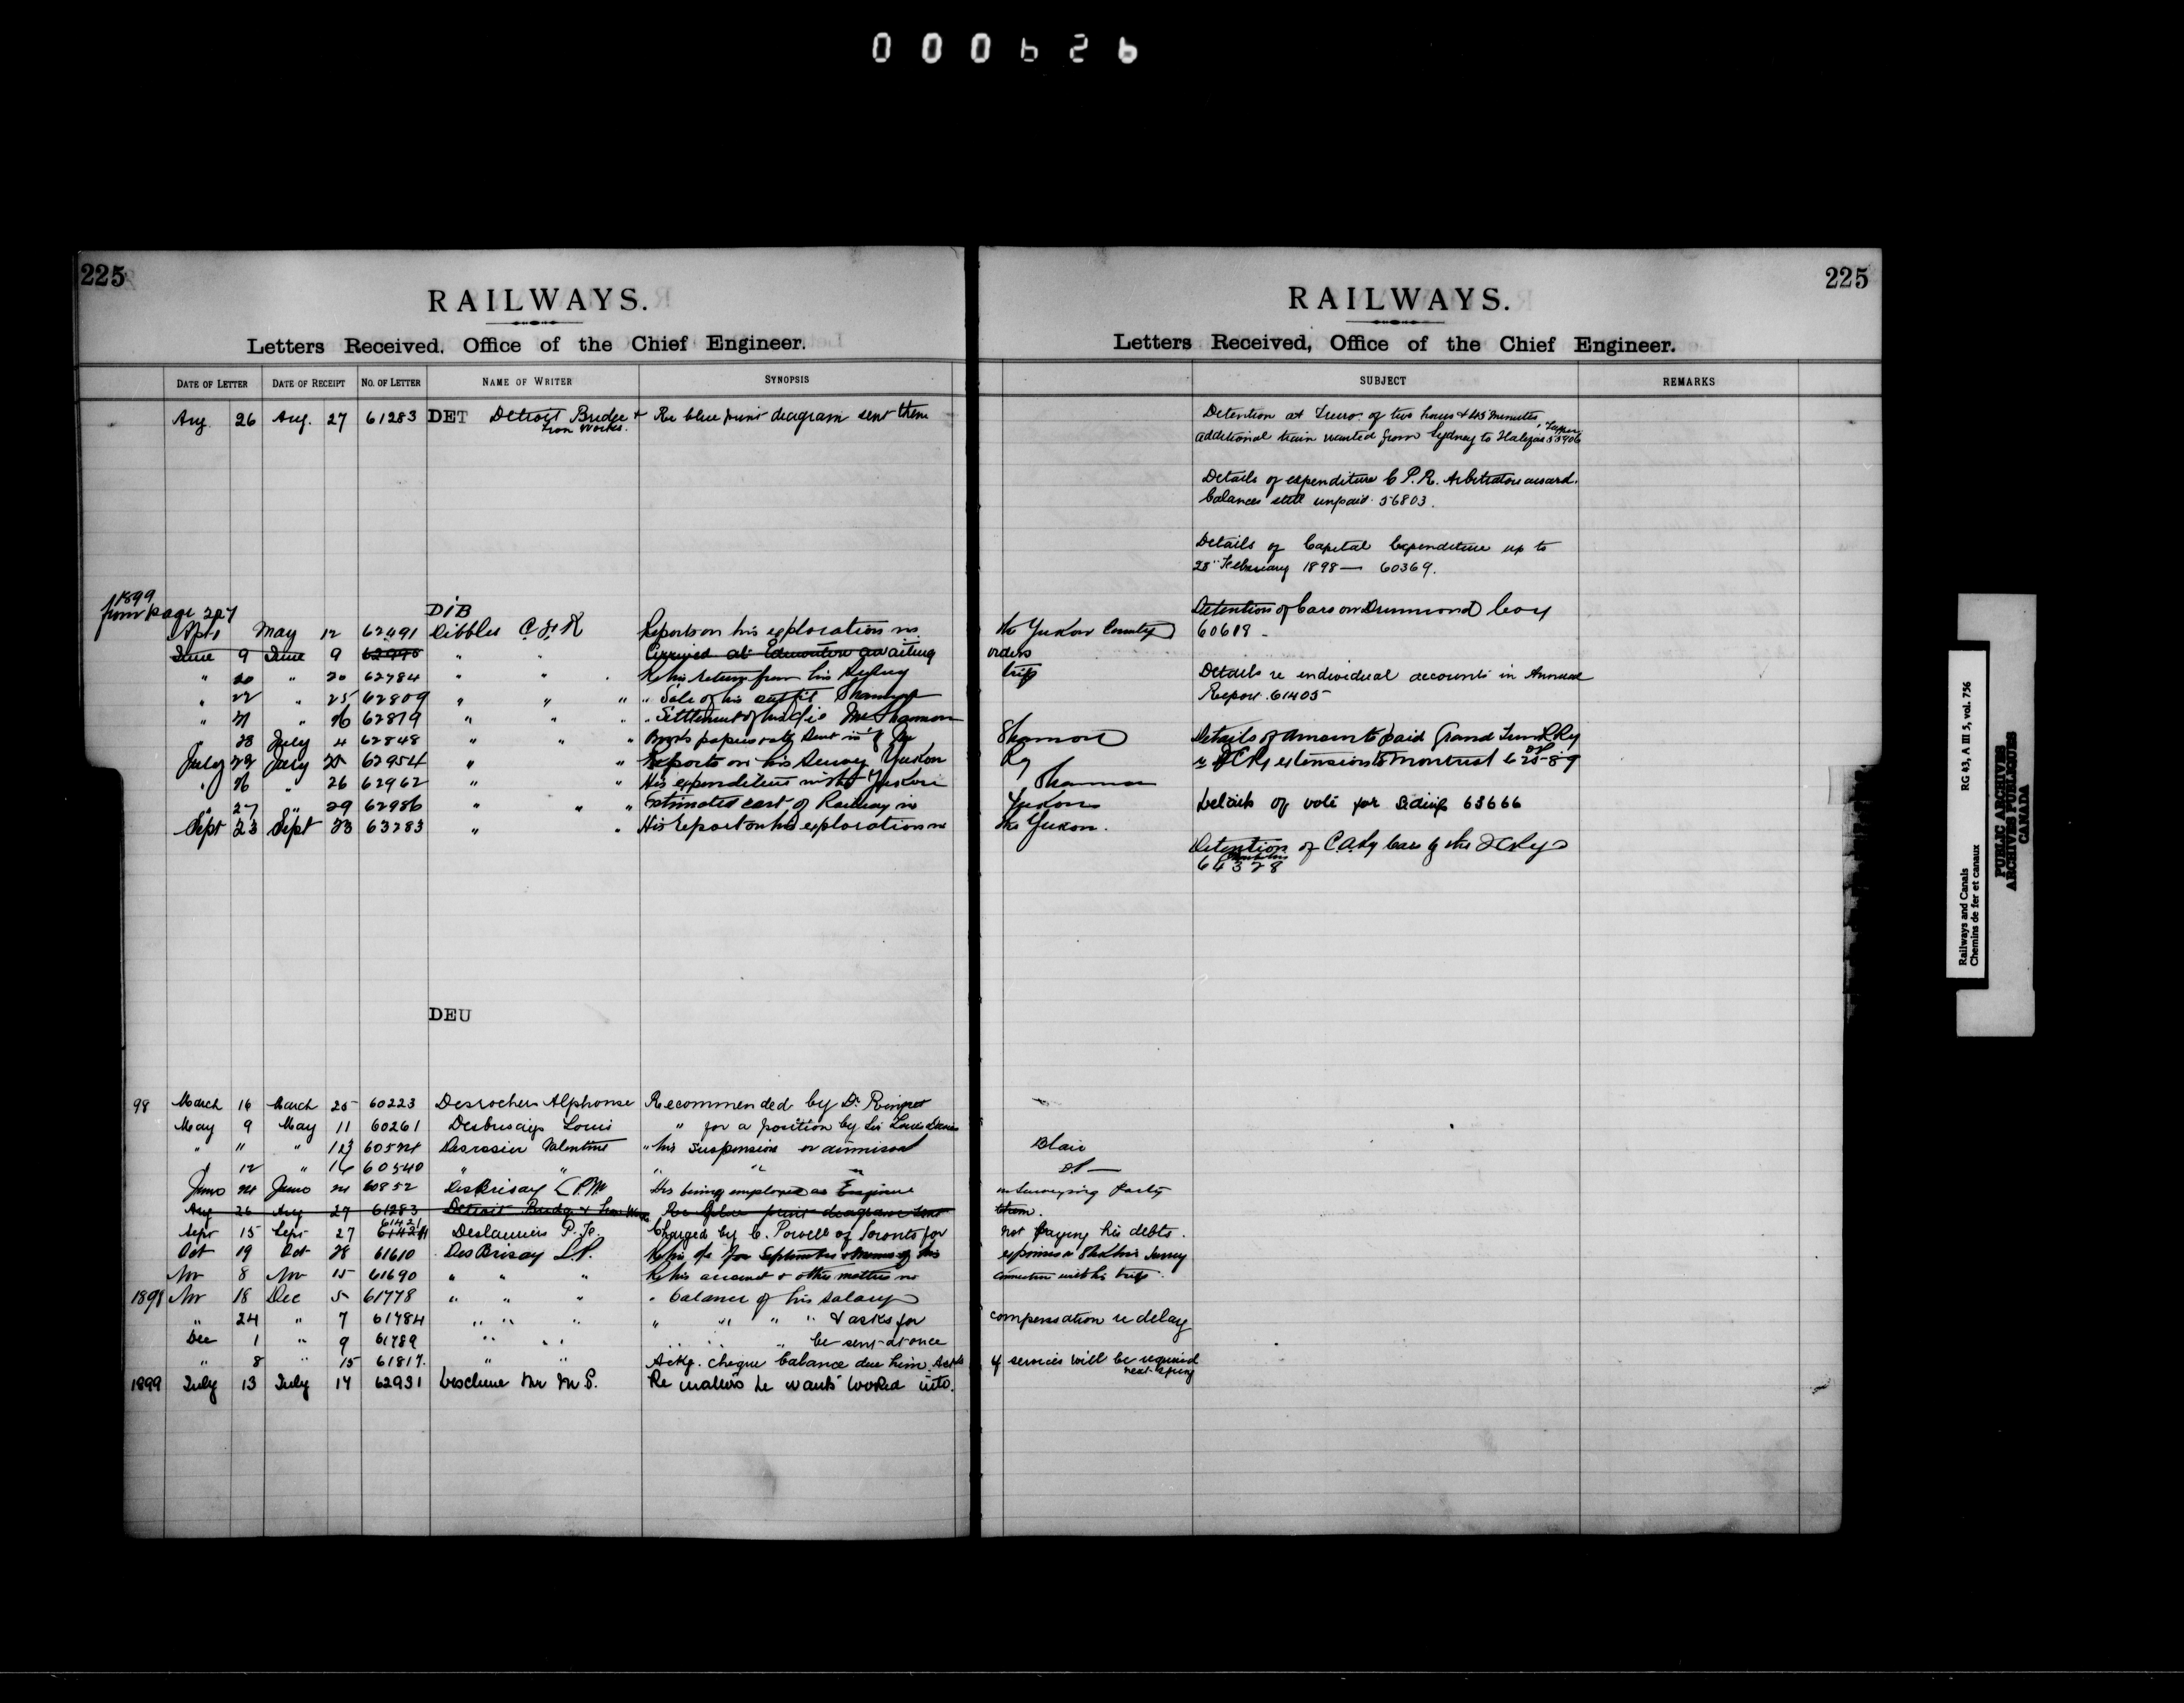 000626
225
RAILWAYS.
Letters Received, Office of the Chief Engineer.
DATE OF LETTER DATE OF RECEIPT NO. OF LETTER NAME OF WRITER SYNOPSIS
Aug 26 Aug. 27 61283 DET Detroit Bridge & Re blue print diagram sent them
Iron Works.
1899
from page 207
DIB
May 12 62491 Dibblee Reports on his exploration in
June 9 June 9 Arrived at Edmonton awaiting
" 20 " 20 62784 " " Re his return from his
" 22 " 25 62809 " " " " Sale of his outfit
" " 62819 " " " " Settlement of
" 28 July 4 62848 " " " Books papers
July 22 July 25 62954 " " Reports on his Survey Yukon
" 26 " 26 62962 " " His expenditure in the Yukon
" 27 " 29 62986 " " " Estimated cost of Railway in
Sept 23 Sept 23 63283 " " His report on his exploration in
DEU
98 March 16 March 25 60223 Desrochers Alphonse Recommended by Dr.
May 9 May 11 60261 Desbrisays Louis " for a position by Sir Louis Davies
" " " 13 Desrosier Valentine " his suspension or dismissal
" 12 " 16 60540 " " " " "
June 24 June 24 60852 DesBrisay His being employed as Engineer
Aug 26 Aug 27 61283 Detroit Bridge & Iron Works Re blue print diagram sent
Sept 15 Sept 27 61421 Deslauriers P. Charged by C. Powell of Toronto for
Oct 19 Oct 28 61610 DesBrisay L.P. Re his a/c for September
Nov 8 Nov 15 61690 " " " Re his account & other matters in
1898 Nov 18 Dec 5 61778 " " " " balance of his salary
" 24 " 7 61784 " " " " " " " & asks for
Dec 1 " 9 61789 " " " " be sent at once
" 8 " 15 61817. " " Ackg. cheque balance due him. Asks
1899 July 13 July 14 62931 Re matters he wants looked into.
225
RAILWAYS.
Letters Received, Office of the Chief Engineer.
SUBJECT REMARKS
Detention at Truro of two hours & 45 minutes
additional train wanted from Sydney to Halifax 55906
Details of expenditure C.P.R. Arbitration award.
balances still unpaid. 56803.
Details of Capital Expenditure up to
28" February 1898 — 60369.
Detention of Cars on Drummond Coy
the Yukon Country 60619 -
orders
trip Details re individual accounts in Annual
Report. 61405
Shannon Details of amount paid Grand Trunk Ry
extension to Montreal
Shannon
Yukon Details of vote for sidings 63666
the Yukon.
Detention of C.A.Ry Cars by the
64328
Blair
do —
in Surveying Party
them.
not paying his debts.
connection with his trip.
compensation re delay
if services will be required
next spring
Railways and Canals
Chemins de fer et canaux
RG 43, A III 5, vol. 756
PUBLIC ARCHIVES
ARCHIVES PUBLIQUES
CANADA